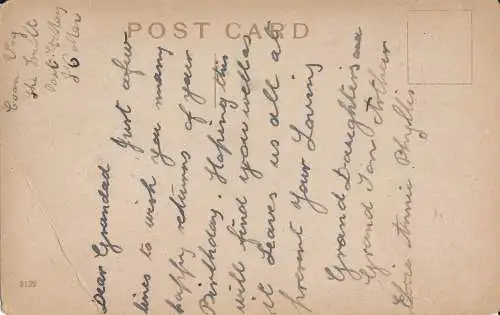 POST CARD
Coom Vig
the Mill
Port
Dear Grandad Just a few
lines to wish you many
happy returns of your
Birthday. Hoping this
will find you well as
it Leaves us all at
present your Loving
Grand Daughters and
Grand Son Arthur
Elsie Annie Phyllis